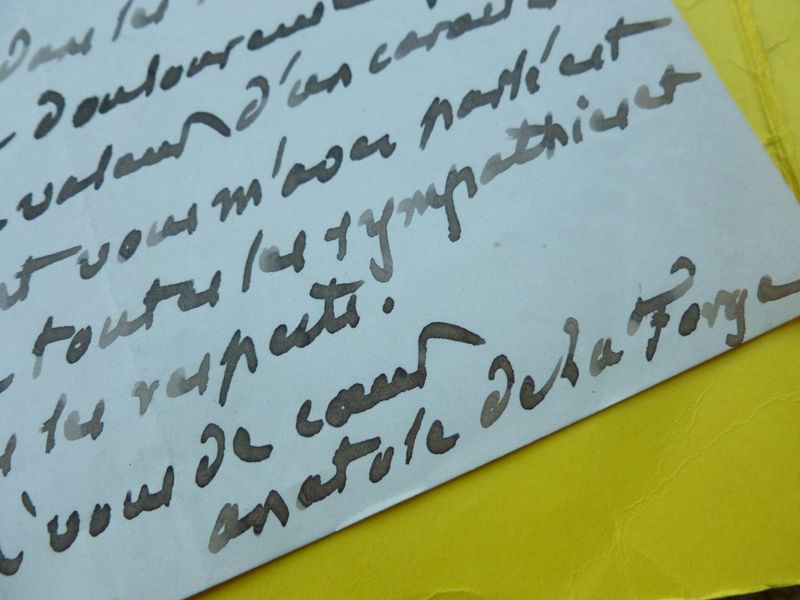 dans les
douloureuse
valeur d'un caractè
vous m'avez parlé et
toutes les sympathies et
les respects.
à vous de cœur
anatole de La Forge